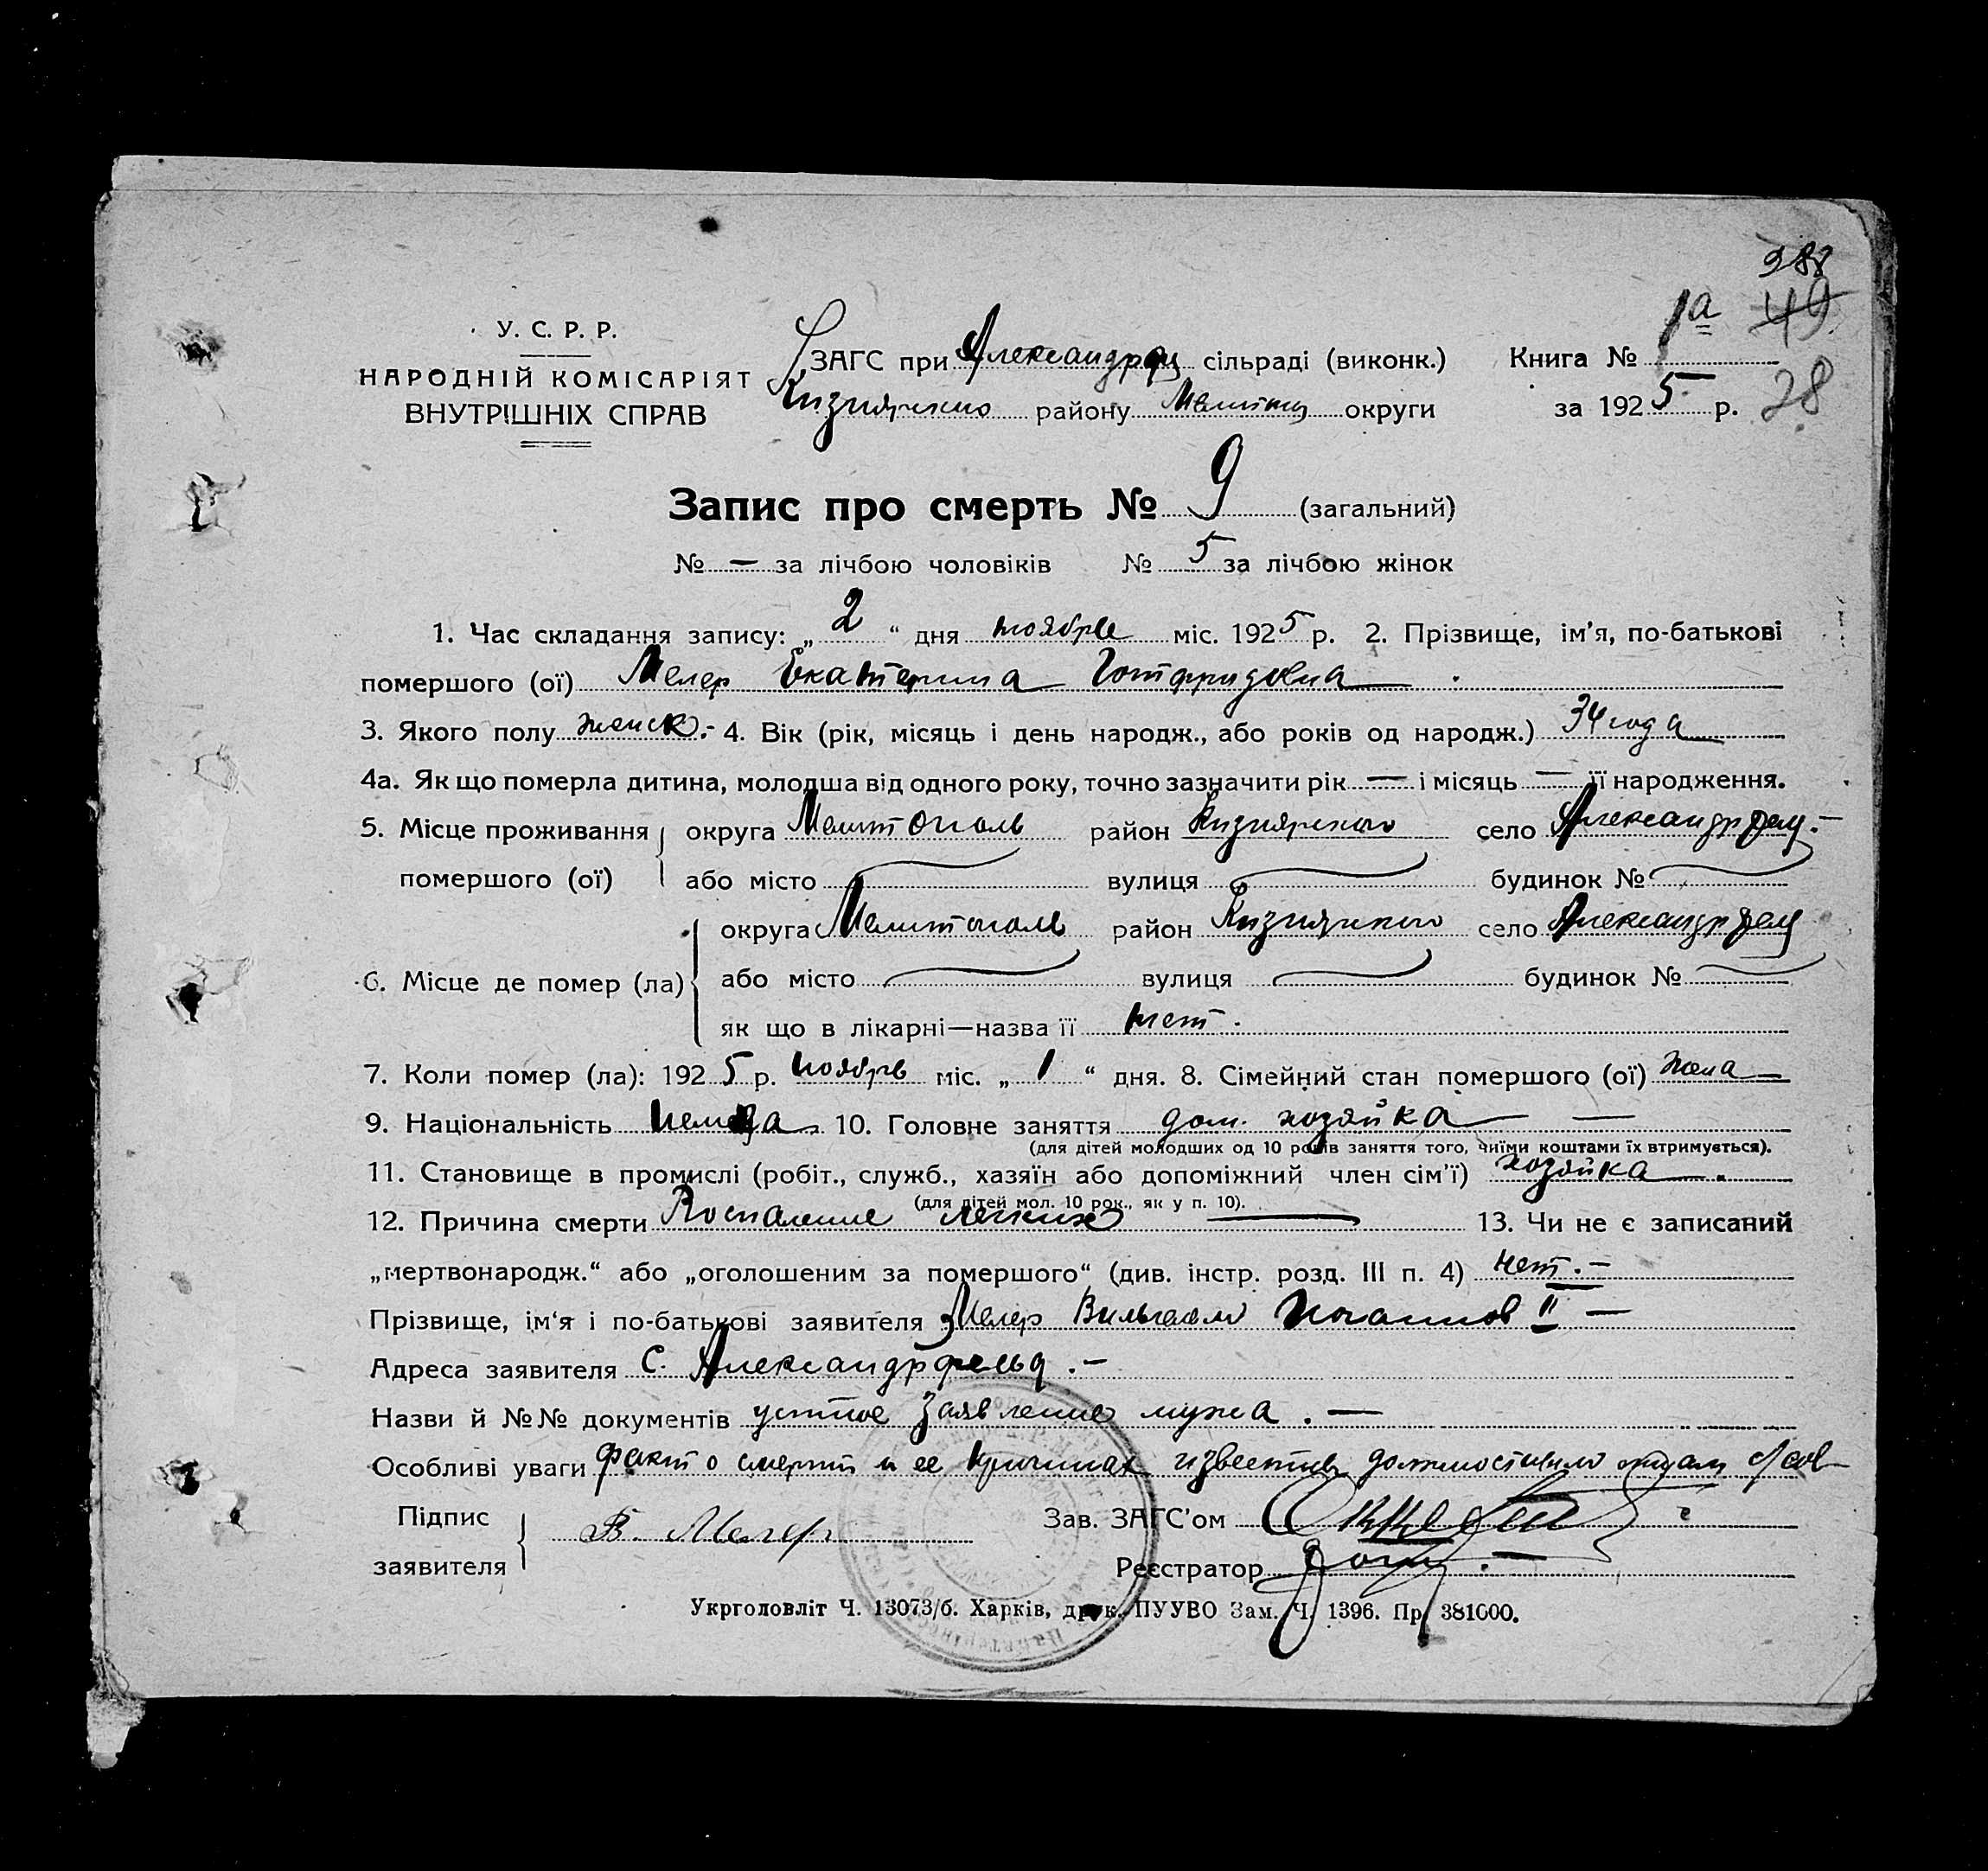 388
1а 49
У. С. Р. Р.
НАРОДНІЙ КОМІСАРІЯТ
ВНУТРІШНІХ СПРАВ
ЗАГС при Александрф сільраді (виконк.) Книга №
району Мелит округи за 1925 р. 28
Запис про смерть № 9 (загальний)
№ — за лічбою чоловіків № 5 за лічбою жінок
1. Час складання запису: „ 2 “ дня ноября міс. 1925 р. 2. Прізвище, ім’я, по-батькові
помершого (ої) Мелер Екатерина Готфридовна
3. Якого полу женск.- 4. Вік (рік, місяць і день народж., або років од народж.) 34 года
4а. Як що померла дитина, молодша від одного року, точно зазначити рік — і місяць — її народження.
5. Місце проживання округа Мелитополь район Кизиярского село Александрфельд.-
помершого (ої) або місто вулиця будинок №
округа Мелитополь район Кизиярского село Александрфельд
6. Місце де помер (ла) або місто вулиця будинок №
як що в лікарні—назва її нет.
7. Коли помер (ла): 1925 р. ноября міс. „ 1 “ дня. 8. Сімейний стан помершого (ої) жена
9. Національність немка 10. Головне заняття дом. хозяйка —
(для дітей молодших од 10 років заняття того, чиїми коштами їх втримується).
11. Становище в промислі (робіт., служб., хазяїн або допоміжний член сім’ї) хозяйка
(для дітей мол. 10 рок., як у п. 10).
12. Причина смерти Воспаление легких — 13. Чи не є записаний
„мертвонародж.“ або „оголошеним за помершого“ (див. інстр. розд. III п. 4) нет.-
Прізвище, ім‘я і по-батькові заявителя Мелер Вильгельм Иоганнов II —
Адреса заявителя с. Александрфельд.-
Назви й №№ документів устное заявление мужа. —
Особливі уваги факт о смерти и ее причинах известны должностным лицам с/сов
Підпис
заявителя В. Мелер
Зав. ЗАГС’ом
Реєстратор
Укрголовліт Ч. 13073/б. Харків, друк. ПУУВО Зам. Ч. 1396. Пр. 381000.